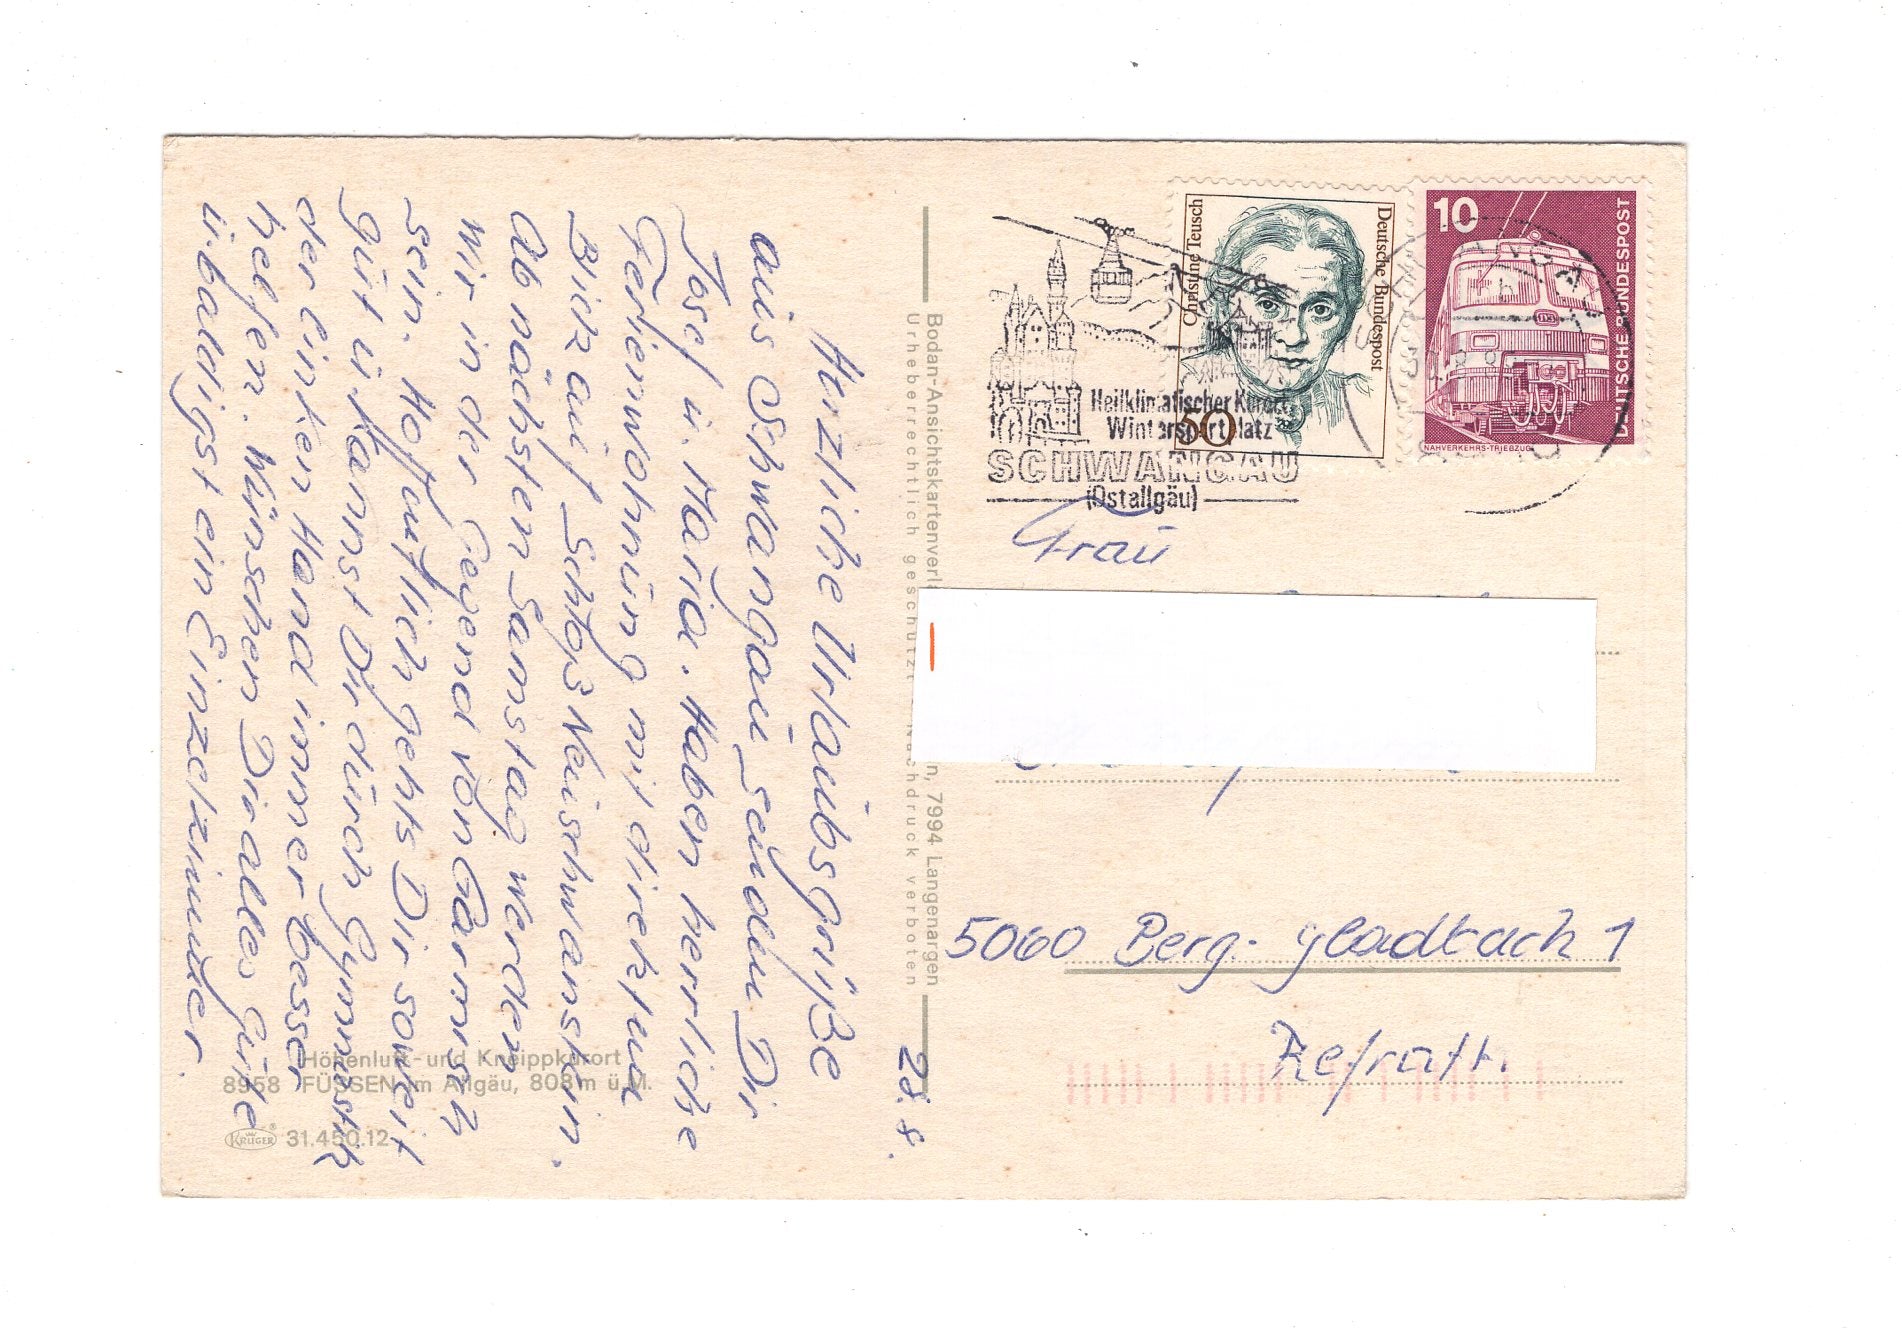 28.8.
Herzliche Urlaubsgrüße
aus Schwangau senden Dir
Josef u. Maria. Haben herrliche
Ferienwohnung mit direktem
Blick auf Schloß Neuschwanstein.
Ab nächsten Samstag werden
wir in der Gegend von Garmisch
sein. Hoffentlich gehts Dir soweit
gut u. kannst Dir durch Gymnastik
der linken Hand immer besser
helfen. Wünschen Dir alles Gute
u. baldigst ein Einzelzimmer.
Höhenluft- und Kneippkurort
8958 FÜSSEN im Allgäu, 808 m ü. M.
KRÜGER ® 31.450.12
Bodan-Ansichtskartenverl n, 7994 Langenargen
Urheberrechtlich geschützt Nachdruck verboten
Heilklimatischer Kurort
Wintersportplatz
SCHWANGAU
(Ostallgäu)
Christine Teusch
Deutsche Bundespost
50
10
DEUTSCHE BUNDESPOST
NAHVERKEHRS-TRIEBZUG
Frau
5060 Berg. Gladbach 1
Refrath.